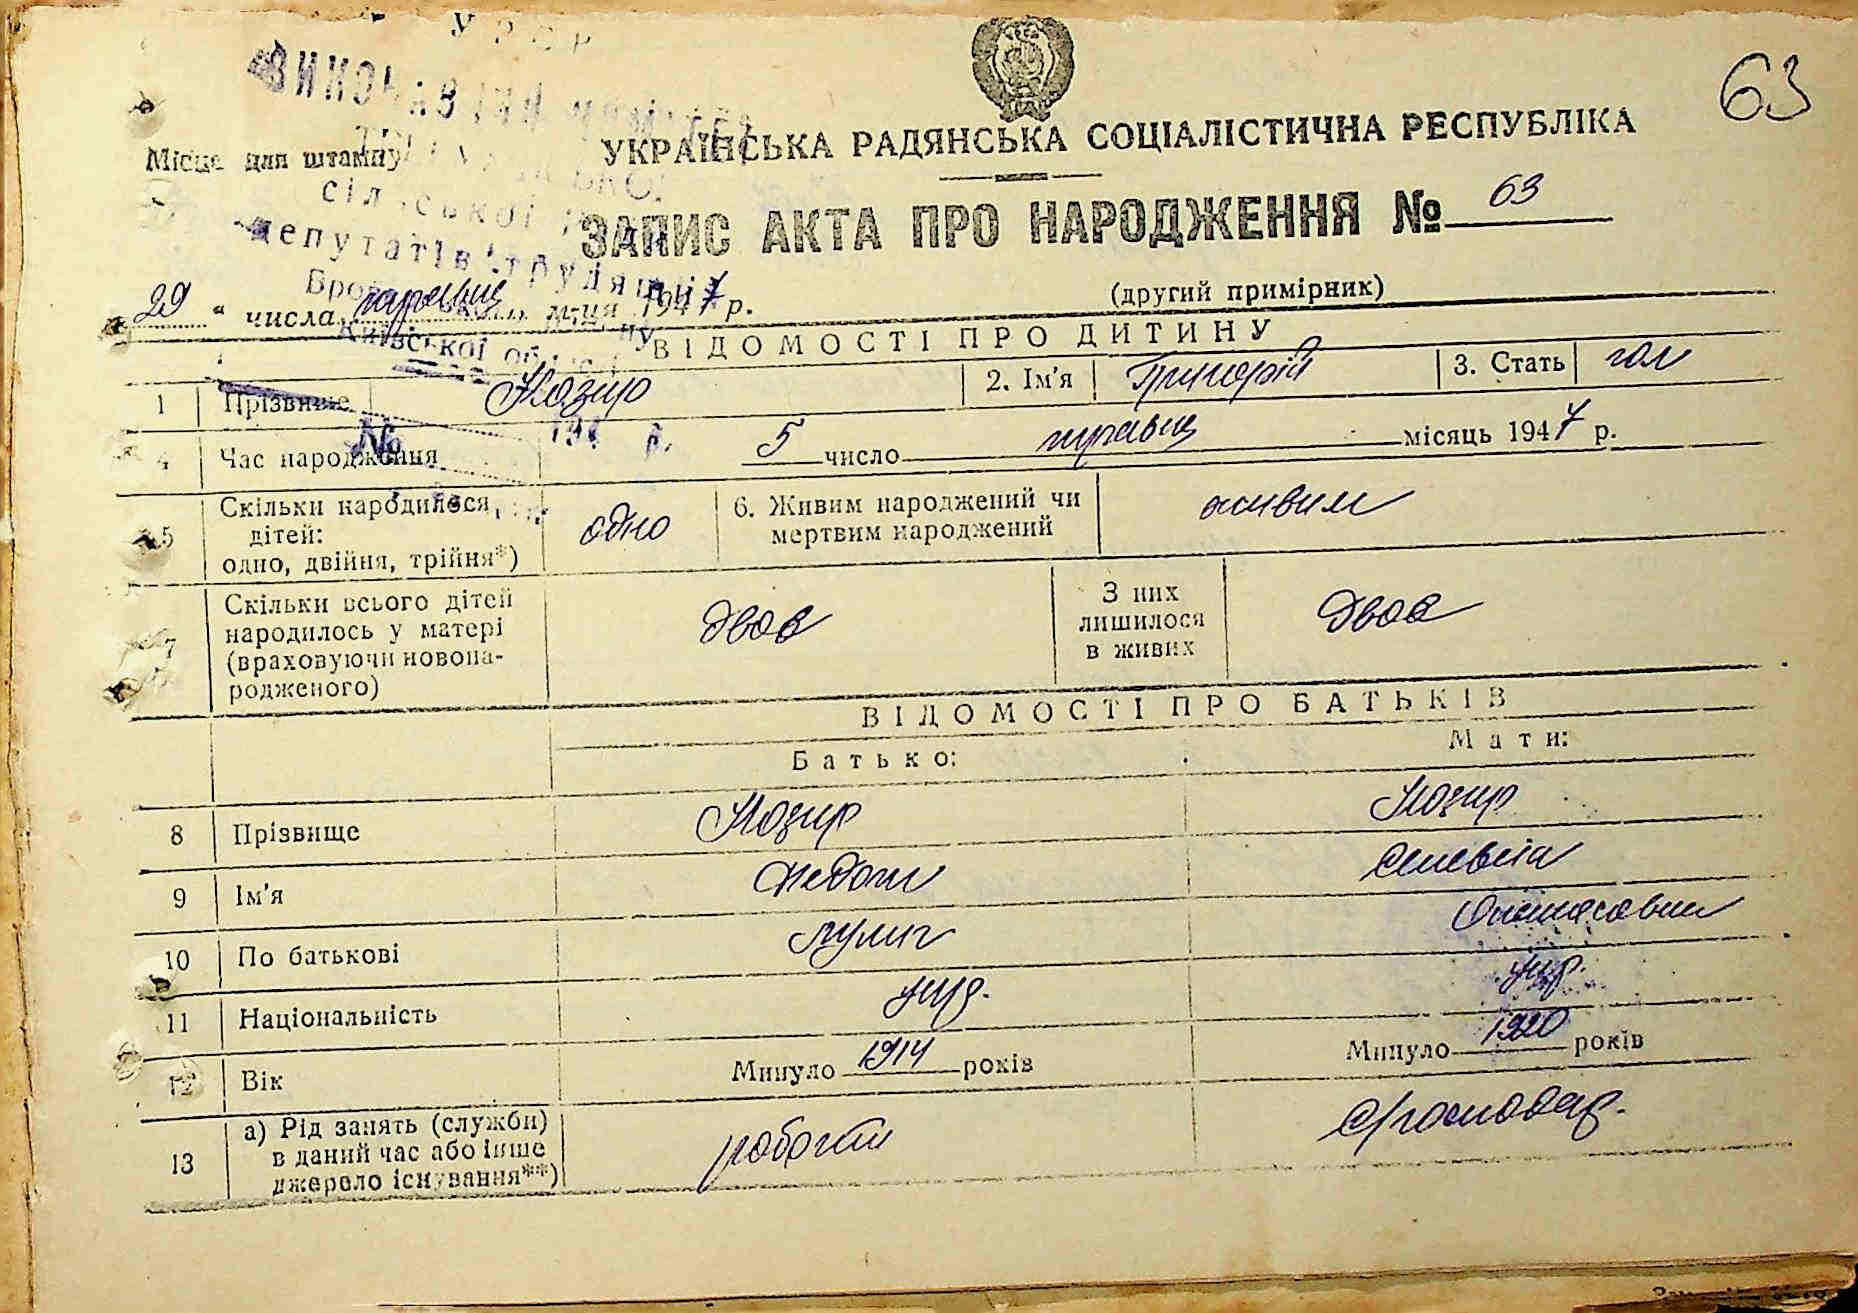 У Р С Р
63
Місце для штампу
УКРАЇНСЬКА РАДЯНСЬКА СОЦІАЛІСТИЧНА РЕСПУБЛІКА
сільської
ЗАПИС АКТА ПРО НАРОДЖЕННЯ № 63
депутатів трудящих
(другий примірник)
29 " числа травня м-ця 1947 р.
Київської області
ВІДОМОСТІ ПРО ДИТИНУ
1 Прізвище Козир 2. Ім'я Григорій 3. Стать чол
№ 194 р.
4 Час народження 5 число травня місяць 1947 р.
5 Скільки народилося дітей: одно, двійня, трійня*) одно 6. Живим народжений чи мертвим народжений живим
7 Скільки всього дітей народилось у матері (враховуючи новонародженого) двоє З них лишилося в живих двоє
ВІДОМОСТІ ПРО БАТЬКІВ
Батько: Мати:
8 Прізвище Козир Козир
9 Ім'я Федот
10 По батькові
11 Національність укр. укр.
12 Вік Минуло 1914 років Минуло 1920 років
13 а) Рід занять (служби) в даний час або інше джерело існування**)